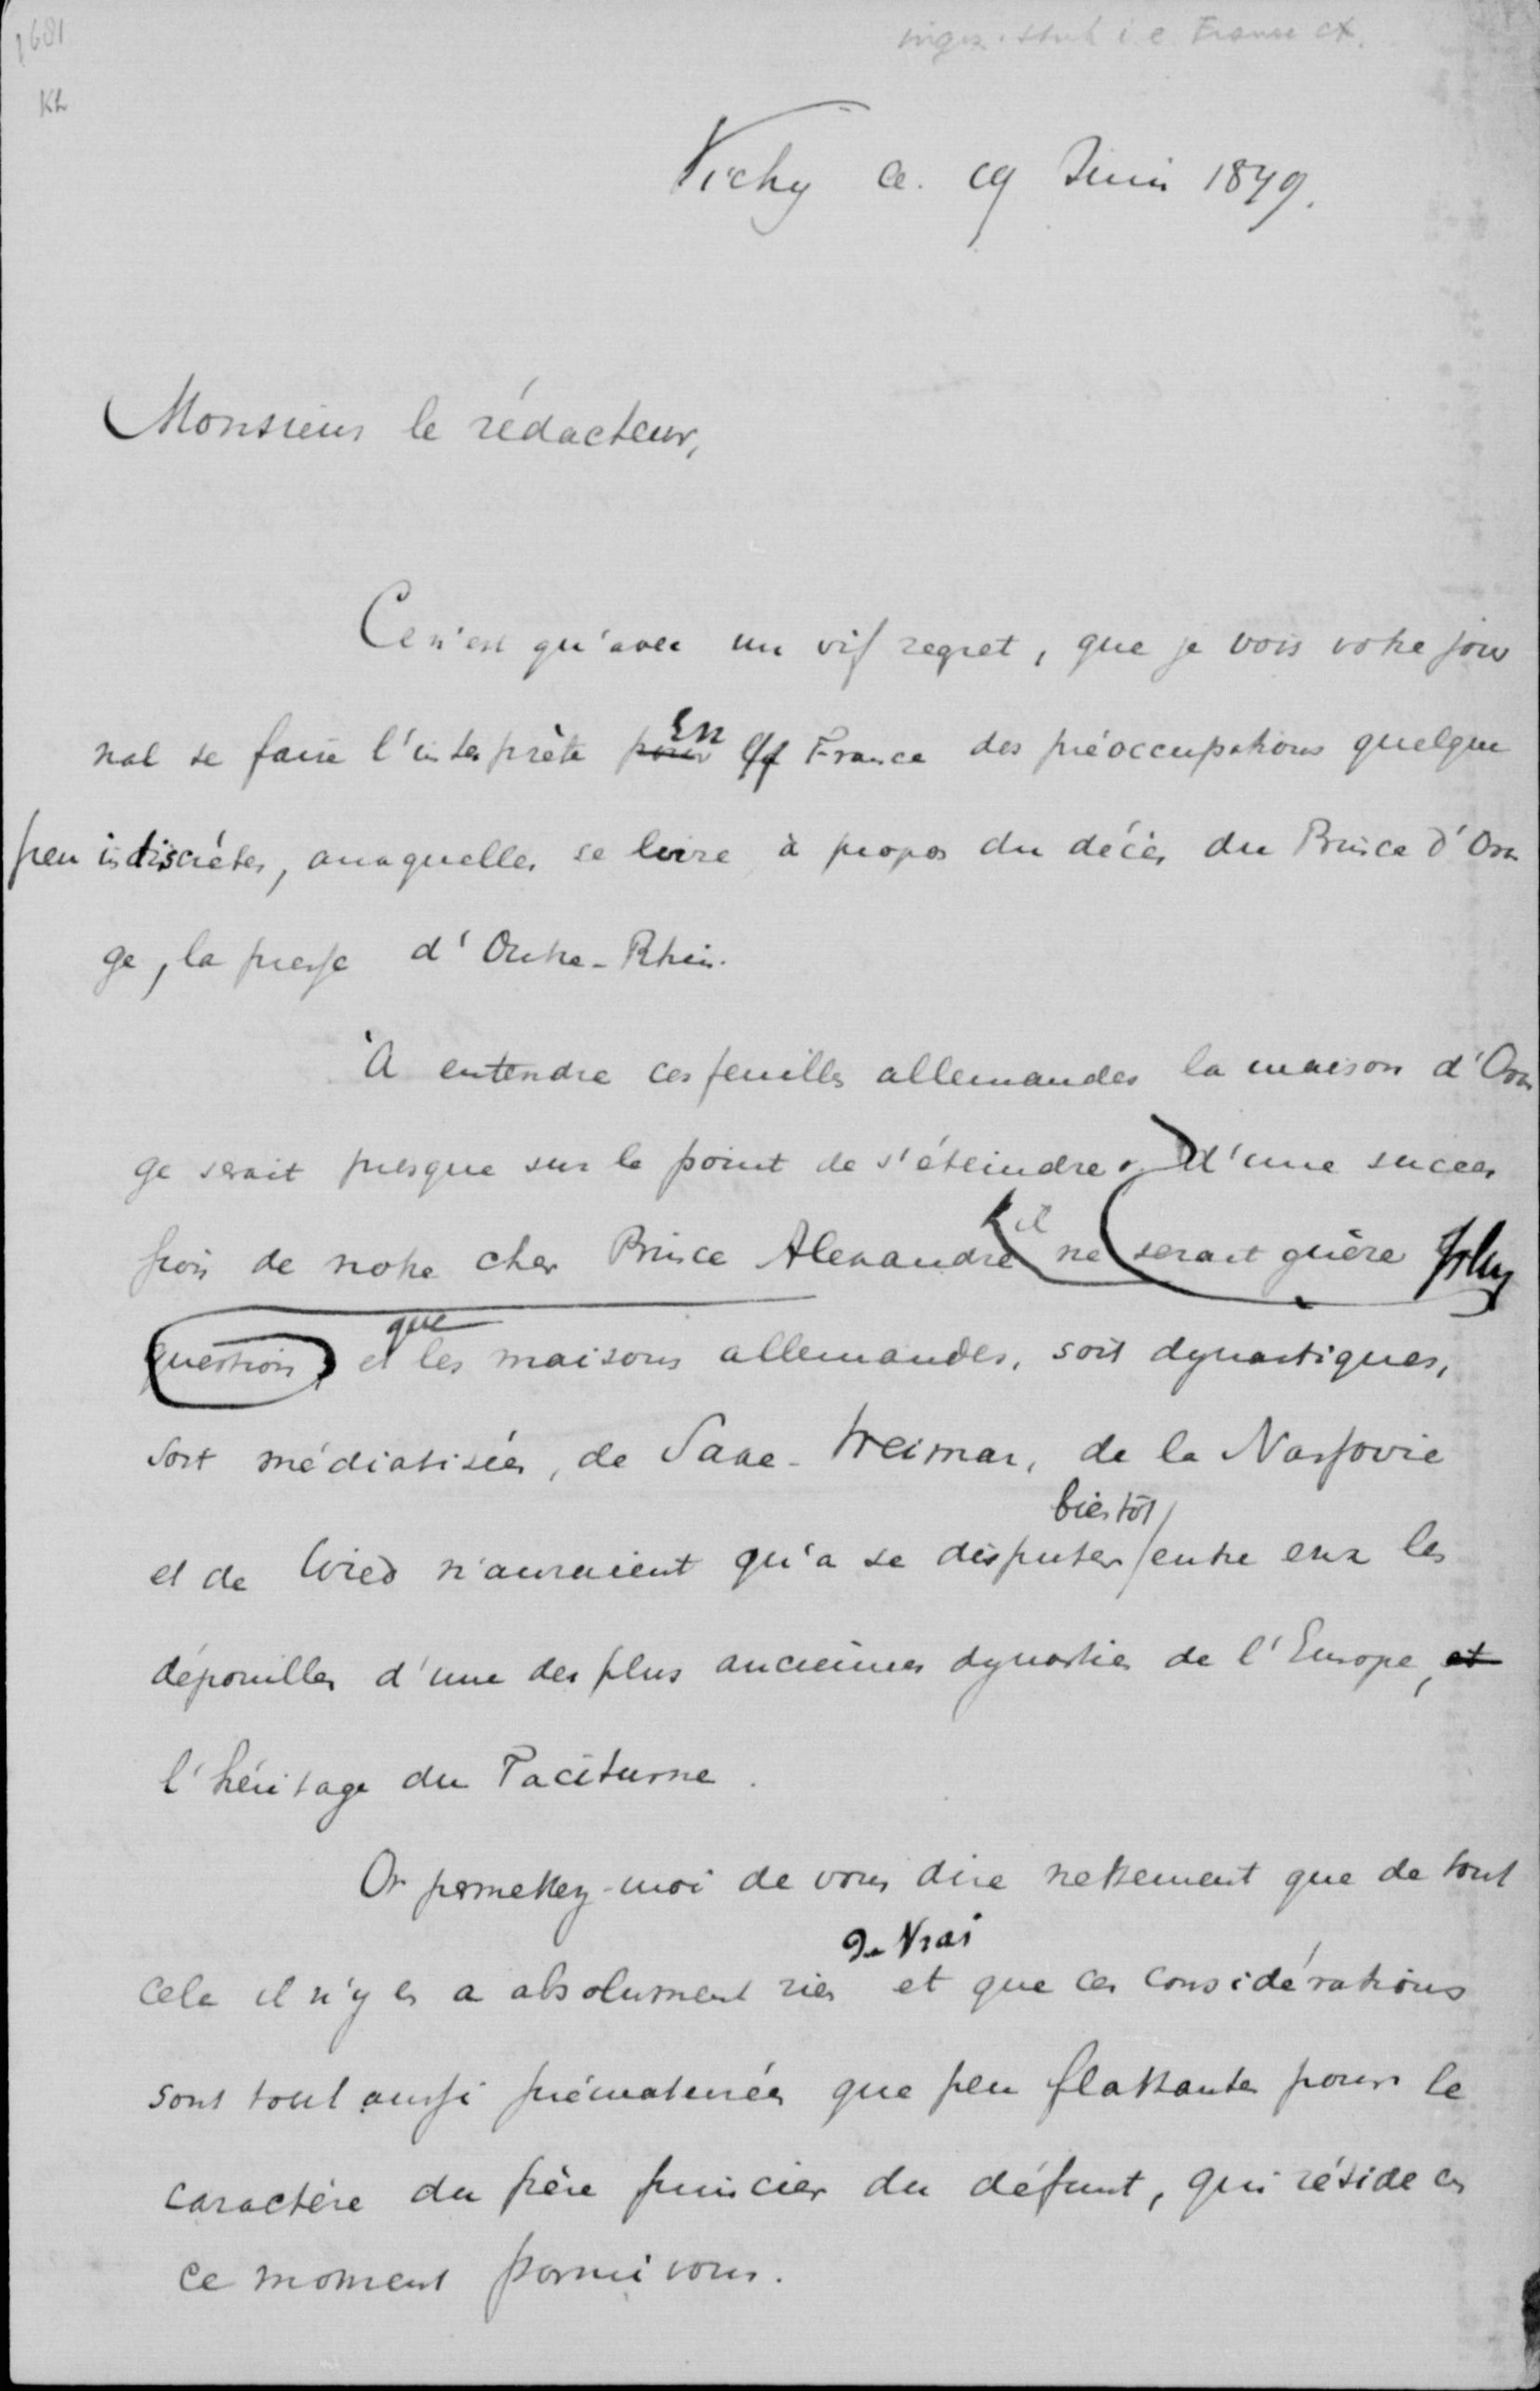 1681
Kh
Vichy ce. 19 Juin 1879.
Monsieur le rédacteur,
Ce n'est qu'avec un vif regret, que je vois votre jour
nal se faire l'interprète pour En France des préoccupations quelque
peu indiscrètes, auxquelles se livre à propos du décès du Prince d'Oran
ge, la presse d'Outre-Rhin.
A entendre ces feuilles allemandes la maison d'Oran
ge serait presque sur le point de s'éteindre, d'une succes
sion de notre cher Prince Alexandre il ne serait guère
question, et que les maisons allemandes, soit dynastiques,
soit médiatisées, de Saxe-Weimar, de la Nassovie
et de Wied n'auraient qu'a se disputer bientôt entre eux les
dépouilles d'une des plus anciennes dynasties de l'Europe, et
l'héritage du Taciturne.
Or permettez-moi de vous dire nettement que de tout
cela il n'y en a absolument rien de Vrai et que ces considérations
sont tout aussi prématurées que peu flattantes pour le
caractère du frère puiscier du défunt, qui réside en
ce moment parmi vous.